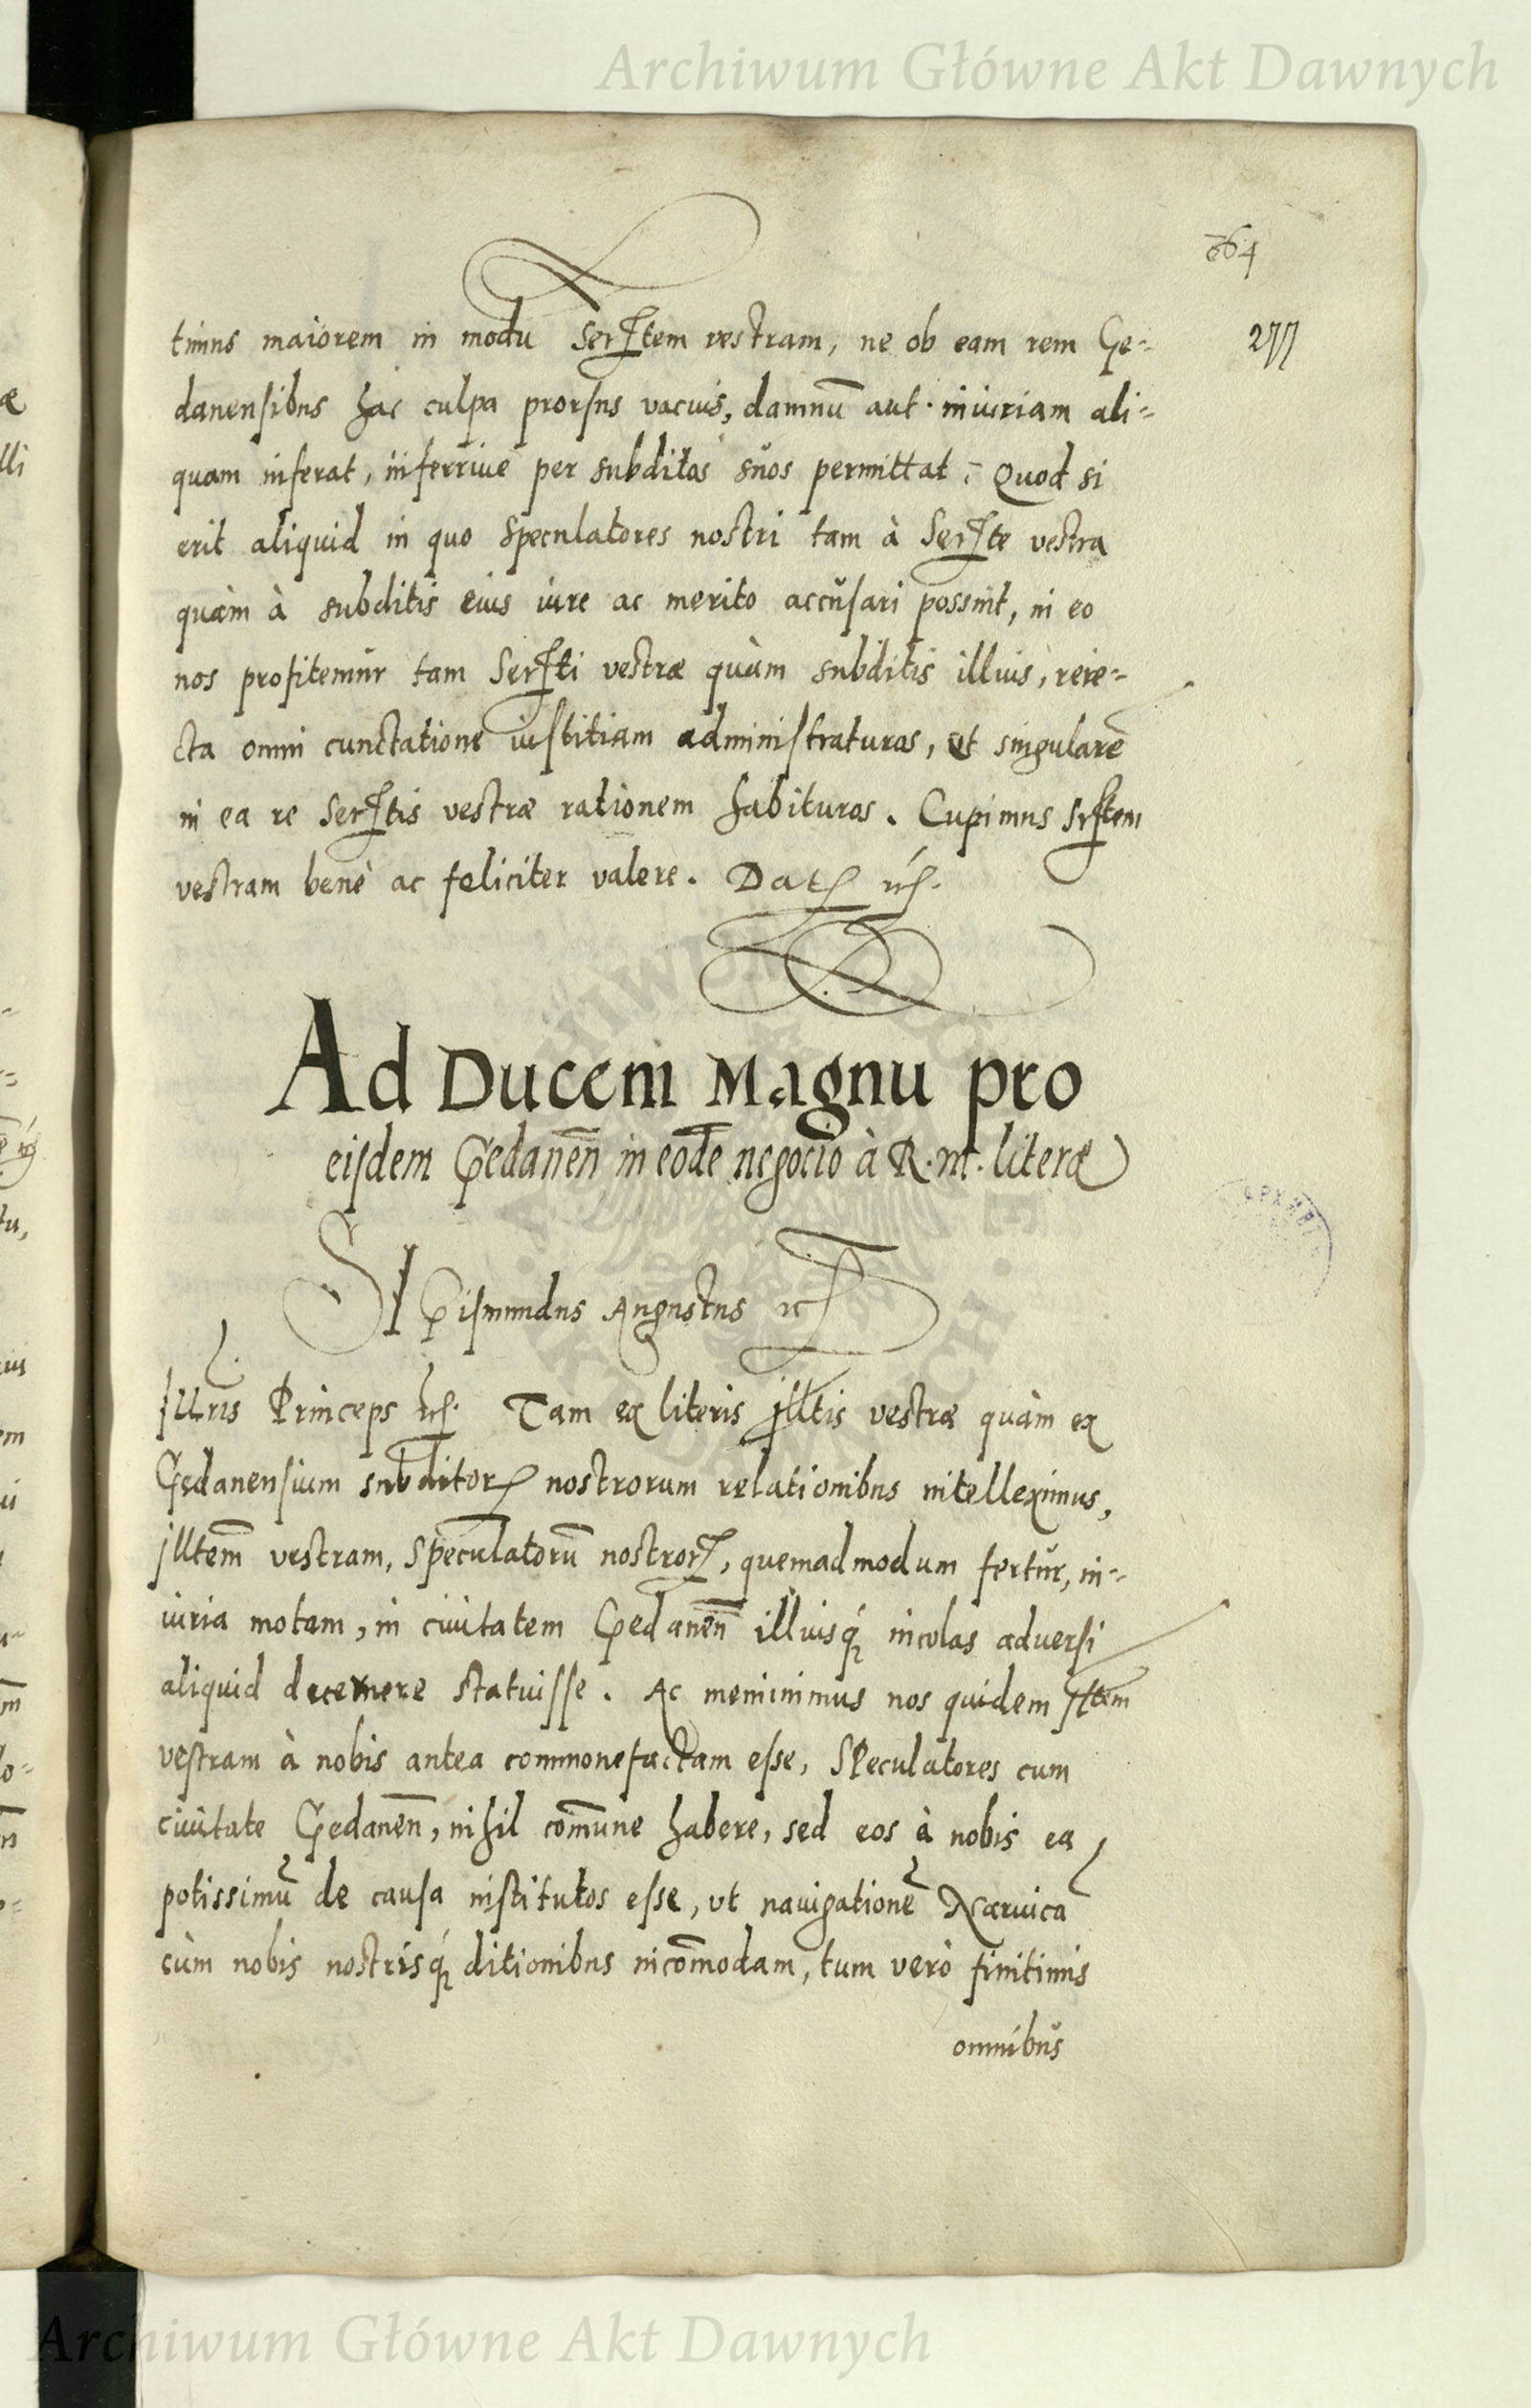 Archiwum Główne Akt Dawnych
364
277
timus maiorem in modu Serstem vestram, ne ob eam rem Ge=
danensibus hac culpa prorsus vacuis, damnū aut iniuriam ali=
quam inferat, inferrive per subditos suos permittat. Quod si
erit aliquid in quo speculatores nostri tam à Serste vestra
quàm à subditis eius iure ac merito accusari possint, in eo
nos profitemur tam Sersti vestræ quàm subditis illius, reie=
cta omni cunctatione iustitiam administraturos, et singularē
in ea re Serstis vestræ rationem habituros. Cupimus Srstem
vestram benè ac feliciter valere. Dat
Ad Ducem Magnu pro
eisdem Gedanēn in eodē negocio à R. M. literæ
SIGismundus Augustus
Illris Princeps Tam ex literis Illtis vestræ quàm ex
Gedanensium subditor nostrorum relationibus intelleximus,
Illtem̄ vestram, speculatorū nostror, quemadmodum fertur, in=
iuria motam, in civitatem Gedanēn illiusq́ incolas adversi
aliquid decernere statuisse. Ac meminimus nos quidem Iltem
vestram à nobis antea commonefactam esse, Speculatores cum
civitate Gedanēn, nihil com̄une habere, sed eos à nobis ea
potissimū de causa institutos esse, ut navigationē Narvica
cùm nobis nostrisq́ ditionibus incom̄odam, tum verò finitimis
omnibus
Archiwum Główne Akt Dawnych